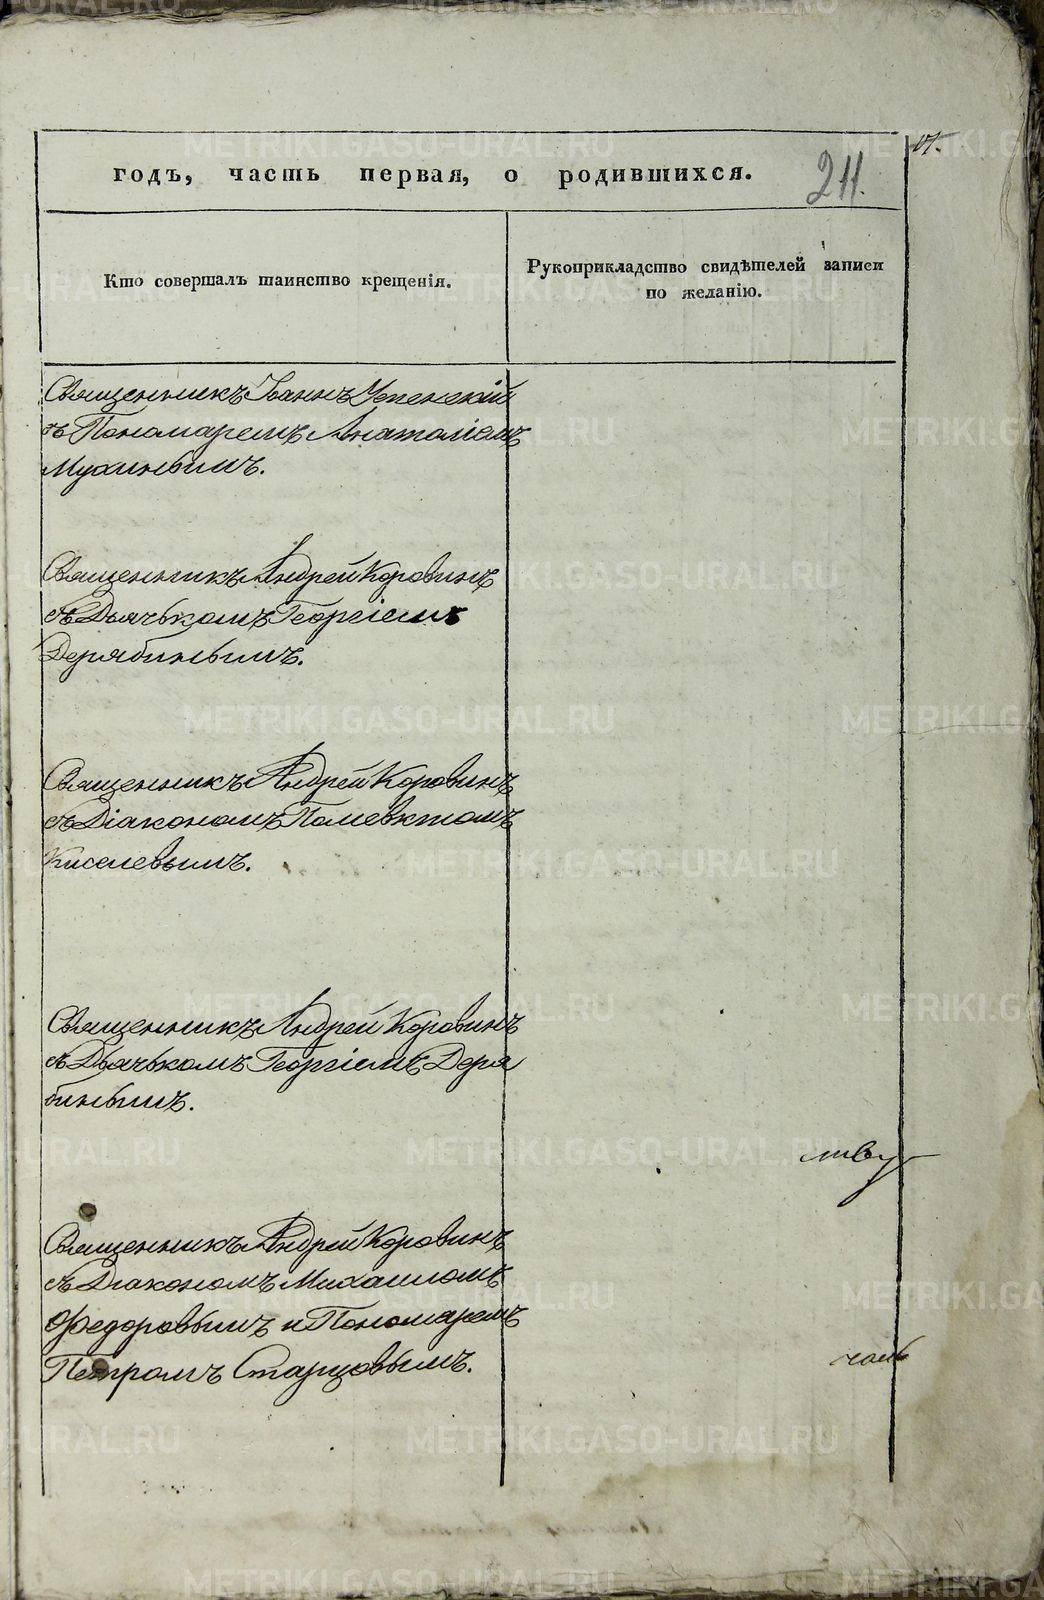 годъ, часть первая, о родившихся.
211.
Кто совершалъ таинство крещенія.
Рукоприкладство свидѣтелей записи
по желанію.
Священникъ Іоаннъ Успенскій
съ Пономаремъ Анатоліемъ
Мухинымъ.
Священникъ Андрей Коровинъ
съ Дьячькомъ Георгіемъ
Дерябинымъ.
Священникъ Андрей Коровинъ
съ Діакономъ Полієвктомъ
Киселевымъ.
Священникъ Андрей Коровинъ
съ Дьячькомъ Георгіемъ Деря
бинымъ.
Священникъ Андрей Коровинъ
съ Діакономъ Михаиломъ
Ѳедоровымъ и Пономаремъ
Петромъ Старцовымъ.
METRIKI.GASO-URAL.RU